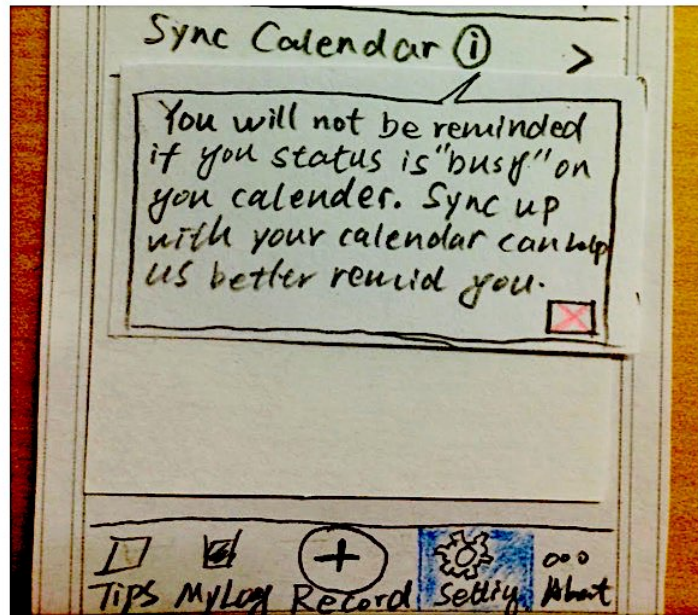 Sync Calendar ⓘ >
You will not be reminded
if you status is "busy" on
you calender. Sync up
with your calendar can help
us better remid you.
Tips MyLog Record Settig About